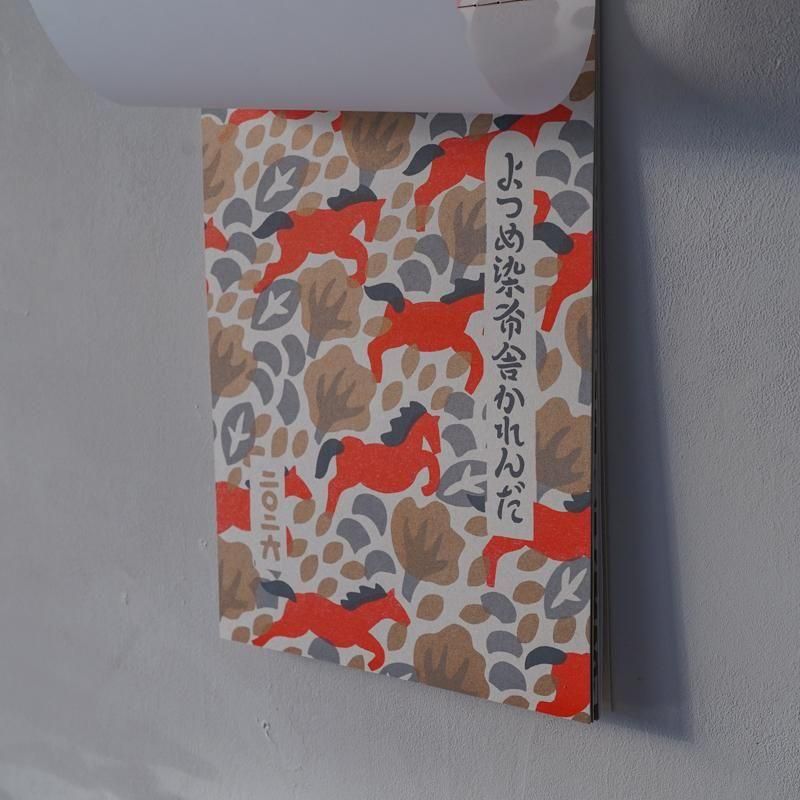 よつめ染布舎かれんだ
二〇二六